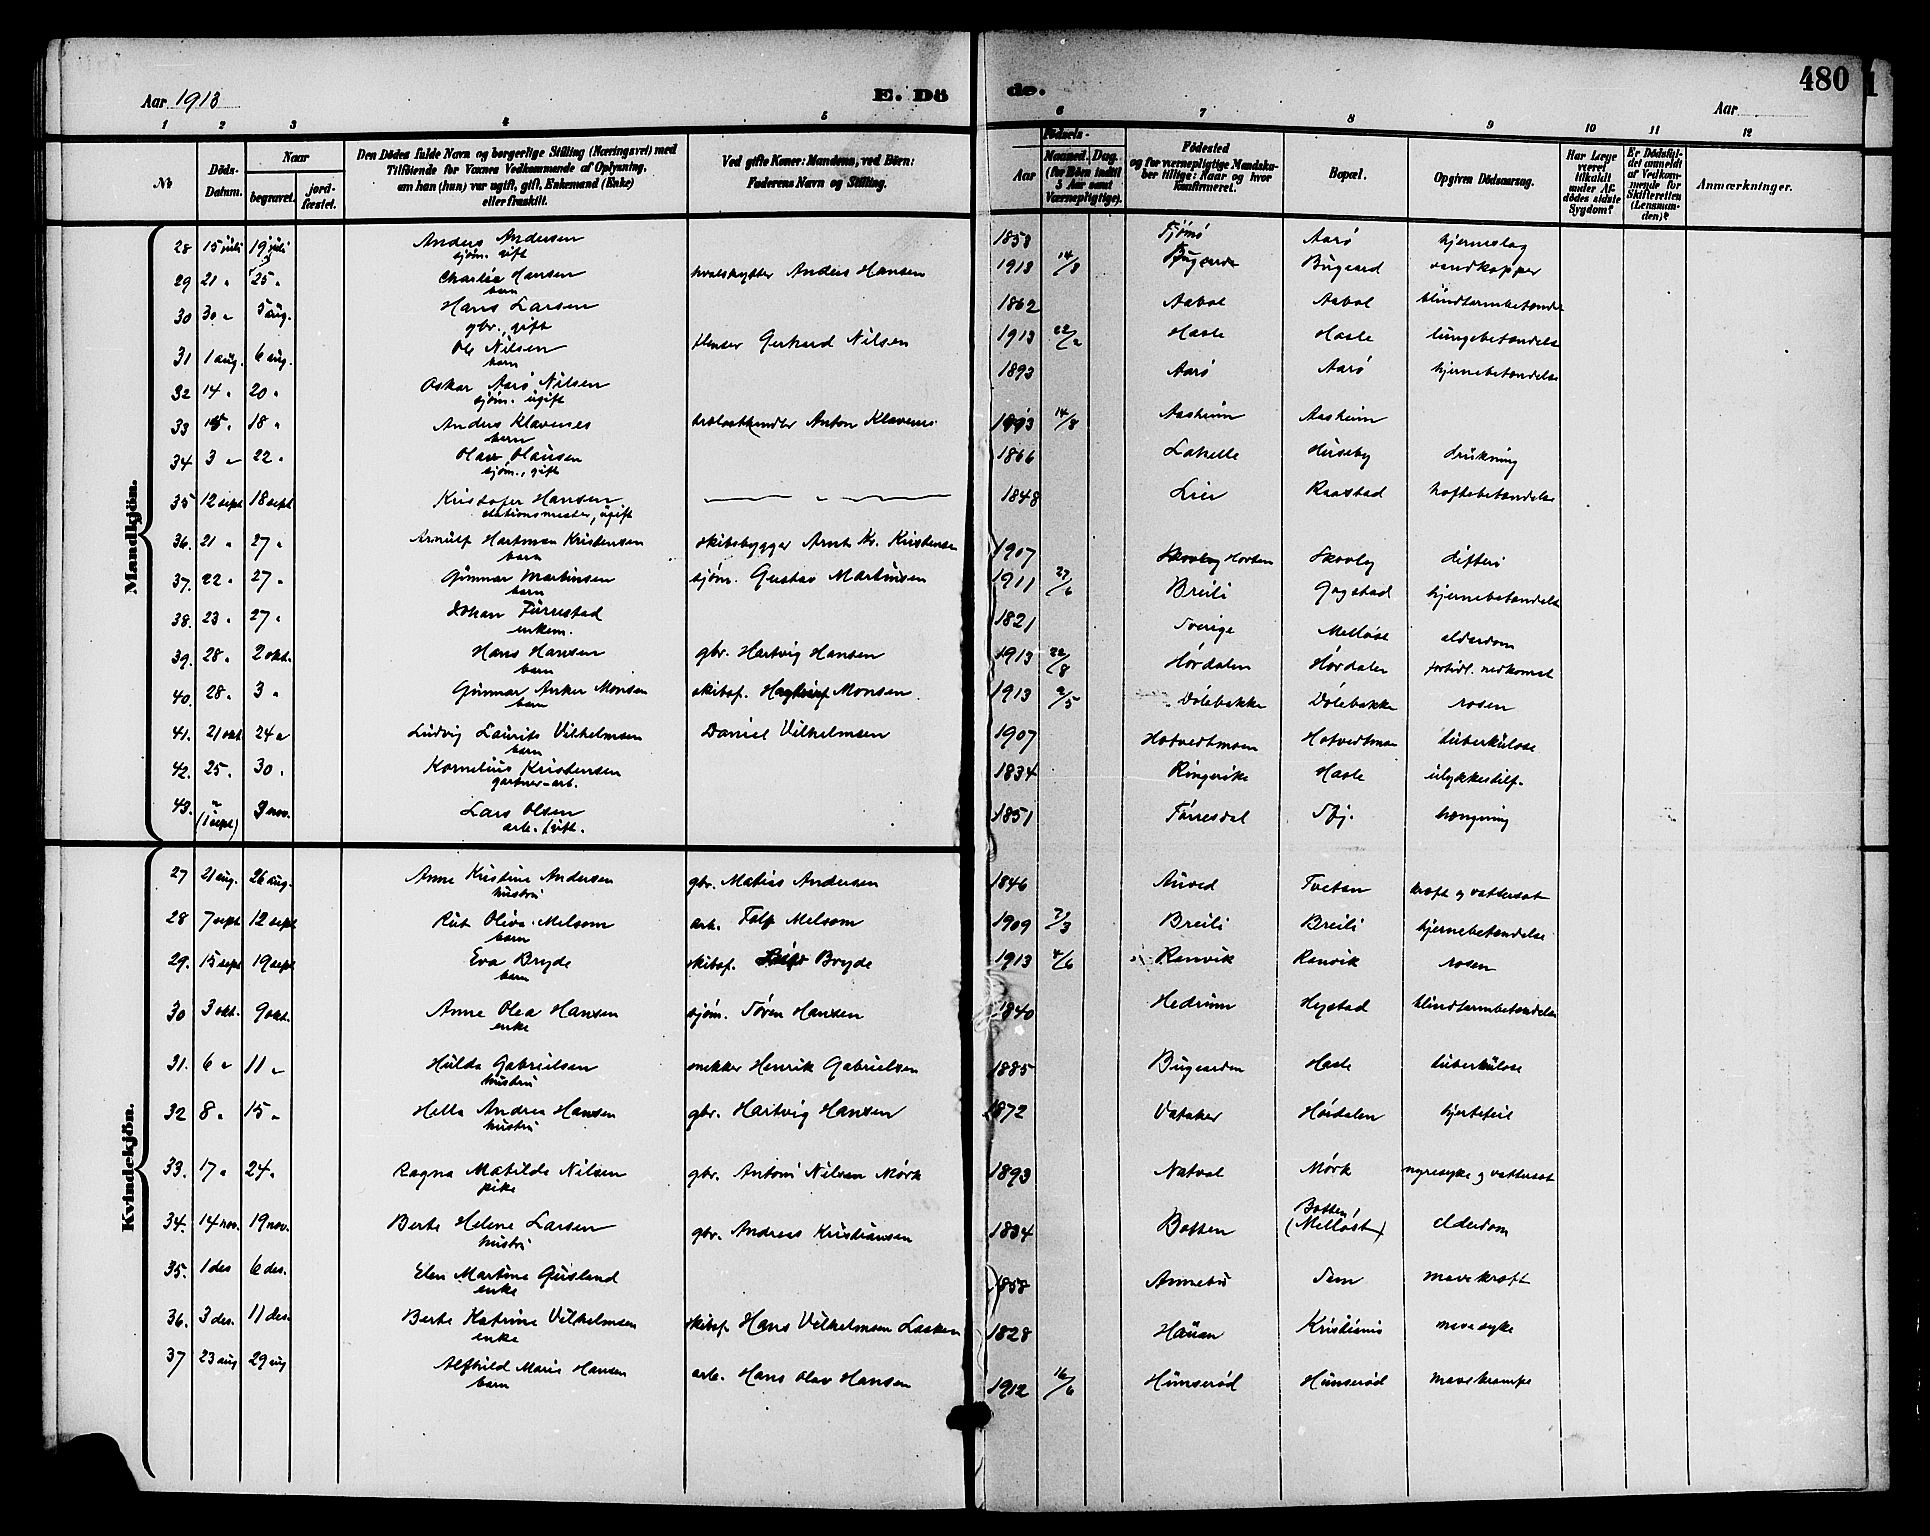 480
Aar 1913 E. Dö de. Aar
1 2 3 4 5 6 7 8 9 10 11 12
No
Döds-Datum.
Naar
begravet.
jord-fæstet.
Den Dödes fulde Navn og borgerlige Stilling (Næringsvei) med
Tilföiende for Voxnes Vedkommende af Oplysning,
om han (hun) var ugift, gift, Enkemand (Enke)
eller fraskilt.
Ved gifte Koner: Mandens, ved Börn:
Faderens Navn og Stilling.
Födsels-
Aar
Maaned. Dag.
(for Börn indtil
5 Aar samt
Værnepligtige).
Födested
og for værnepligtige Mandska-
ber tillige: Naar og hvor
konfirmeret.
Bopæl.
Opgiven Dödsaarsag.
Har Læge
været
tilkaldt
under Af-
dödes sidste
Sygdom?
Er Dödsful-
det anmeldt
af Vedkom-
mende for
Skifteretten
(Lensman-
den)?
Anmærkninger.
Mandkjön.
28 15 juli 19 juli Anders Andersen 1858 Tjømø Aarø hjerneslag
sjøm. gift
29 21 " 25 " Charlie Hansen hvalskytter Anders Hansen 1913 14/3 Bugaard vandkopper
barn
30 30 " 5 aug. Hans Larsen 1862 Aabol Aabol blindtarmbetændelse
gbr., gift
31 1 aug. 6 aug. Ole Nilsen flenser Gerhard Nilsen 1913 22/2 Hasle Hasle lungebetændelse
barn
32 14 " 20 " Oskar Aarø Nilsen 1893 Aarø Aarø hjernebetændelse
sjøm. ugift
33 15 " 18 " Anders Klavenes Anton Klavenes 1913 14/8 Aasheim Aasheim
barn
34 3 " 22 " Olav Olausen 1866 Lahelle Huseby drukning
sjøm., gift
35 12 sept 18 sept Kristofer Hansen — " — 1848 Lier Raastad hoftebetændelse
stationsmester, ugift
36. 21 " 27 " Arnulf Hartman Kristensen skibsbygger Arnt Kr. Kristensen 1907 Skovby Horten Skovby difteri
barn
37. 22 " 27 " Gunnar Martinsen sjøm. Gustav Martinsen 1911 27/6 Breili Gogstad hjernebetændelse
barn
38. 23 " 27 " Johan Furustad 1821 Sverige Melløse alderdom
enkem.
39. 28 " 2 okt. Hans Hansen gbr. Hartvig Hansen 1913 22/8 Hørdalen Hørdalen fortidl. nedkomst
barn
40. 28 " 3 " Gunnar Anker Monsen skibsf. Monsen 1913 2/5 Dølebakke Dølebakke rosen
barn
41. 21 okt 24 " Ludvig Laurits Vilhelmsen Daniel Vilhelmsen 1907 Hotvedtmoen Hotvedtmoen tuberkulose
barn
42. 25 " 30 " Kornelius Kristensen 1834 Ringerike Hasle ulykkestilf.
gartner-arb.
43. " 3 nov. Lars Olsen 1851 Tørresdal hængning
(1 sept) arb. gift.
Kvindekjön.
27 21 aug. 26 aug. Anne Kristine Andersen gbr. Matias Andersen 1846 Auved Tvetan kræft og vattersot
hustru
28 7 sept 12 sept Rut Oliva Melsom arb. Falf Melsom 1909 7/3 Breili Breili hjernebetændelse
barn
29. 15 sept 19 sept Eva Bryde skibsf. Bryde 1913 4/6 Ranvik Ranvik rosen
barn
30 3 okt. 9 okt. Anne Olea Hansen sjøm. Søren Hansen 1840 Hedrum Hystad blindtarmbetændelse
enke
31. 6 " 11 " Hulda Gabrielsen snekker Henrik Gabrielsen 1885 Bugaarden Hasle tuberkulose
hustru
32 8 " 15 " Hella Andrea Hansen gbr. Hartvig Hansen 1872 Vataker Hørdalen hjertefeil
hustru
33. 17 " 24 " Ragna Matilde Nilsen gbr. Antoni Nilsen Mørk 1893 Natvol Mørk nyresyke og vattersot
pike
34. 14 nov. 19 nov. Berte Helene Larsen gbr. Andreas Kristiansen 1834 Botten Botten, (Melløst) elderdom
hustru
35. 1 des 6 des. Elen Martine Gusland 1858 Annebu Sem mavekræft
enke
36. 3 des. 11 des. Berte Katrine Vilhelmsen skibsf. Hans Vilhelmsen Lasken 1828 Hauan Kristiania mavesyke
enke
37 23 aug 29 aug Alfhild Marie Hansen arb. Hans Olav Hansen 1912 16/6 Hunserød Hunserød mavekrampe
barn